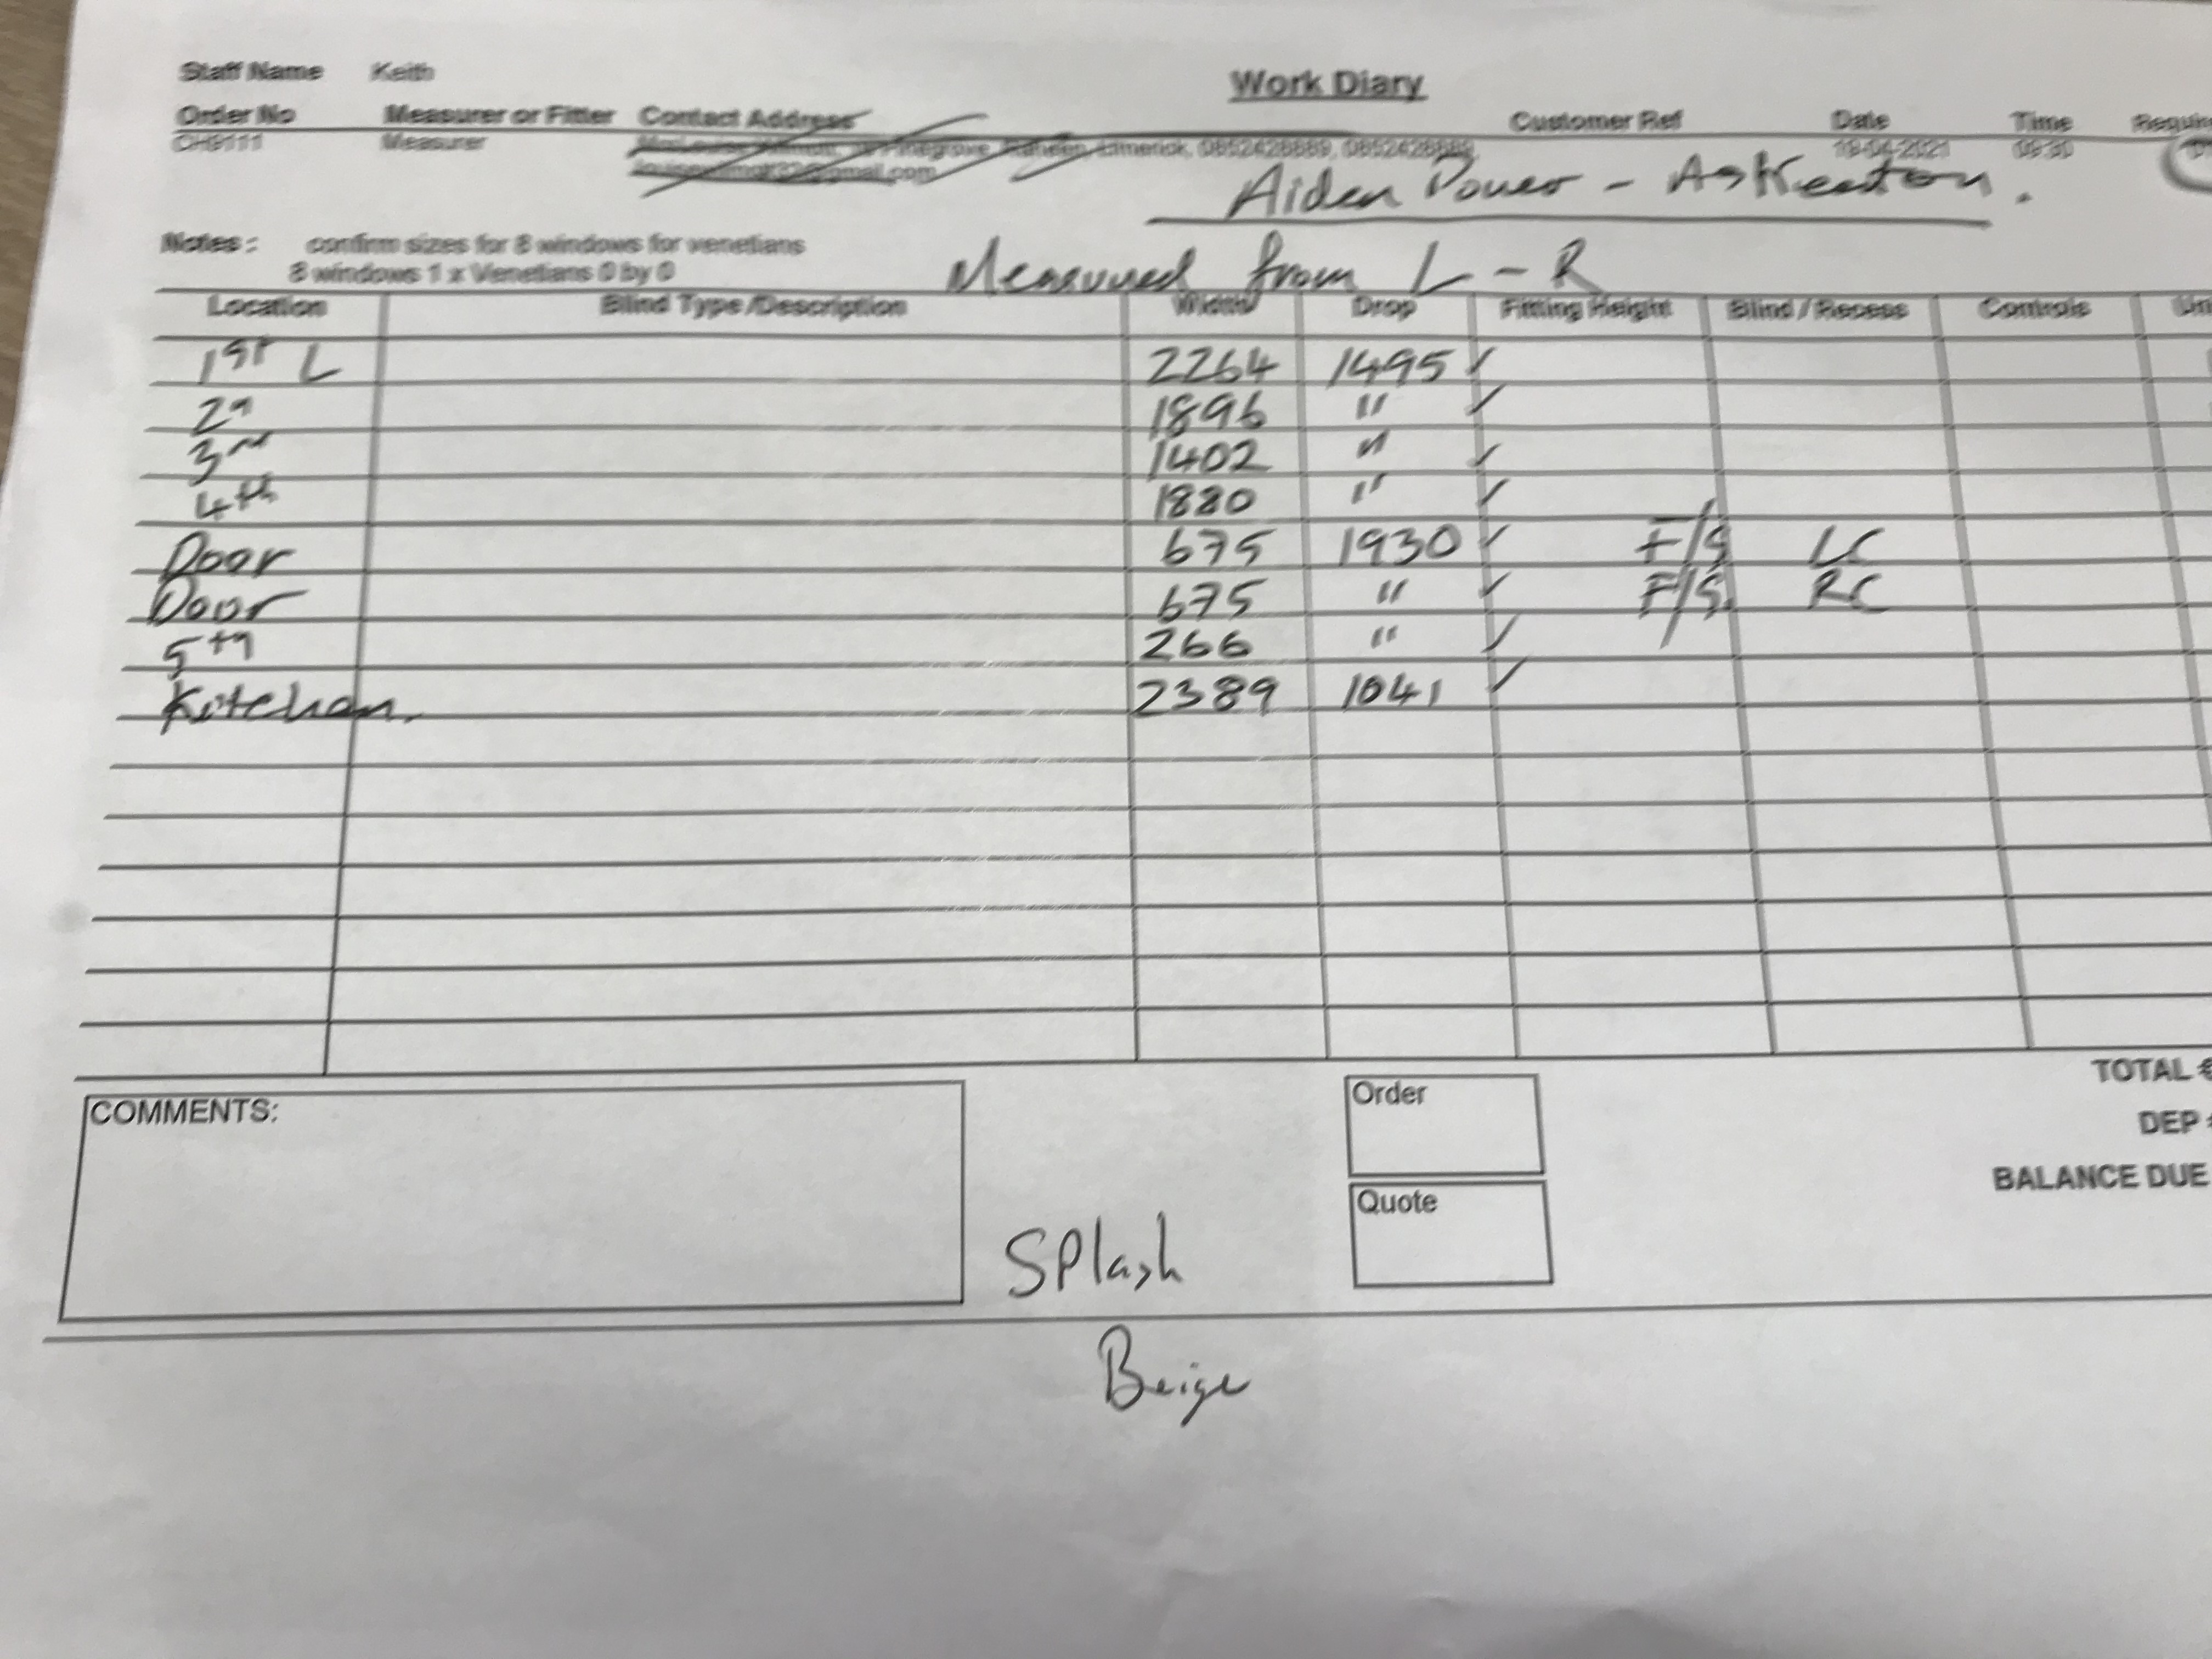 Staff Name Keith
Work Diary
Order No Measurer or Fitter Contact Address Customer Ref Date Time
CH9111 Measurer Limerick, 0852428889, 0852428889, 19-04-2021 09:30
Aiden Power - Askeaton.
Notes : confirm sizes for 8 windows for venetians
8 windows 1 x Venetians 0 by 0
Measured from L - R
Location Blind Type /Description Width Drop Fitting Height Blind / Recess Controls
1st L 2264 1495 ✓
2n 1896 " ✓
3rd 1402 " ✓
4th 1880 " ✓
Door 675 1930 ✓ F/S LC
Door 675 " ✓ F/S. RC
5th 266 " ✓
Kitchen. 2389 1041 ✓
TOTAL €
COMMENTS: Order
DEP
BALANCE DUE
Quote
SPlash
Beige